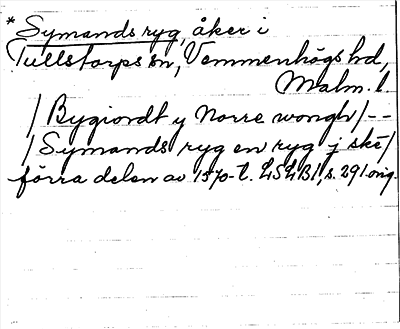 * Symands ryg, åker i
Tullstorps sn, Vemmenhögs hd,
Malm. l.
/ Bygiordt y Norre wongh / - -
/ Symands ryg en ryg j ske /
förra delen av 1570-t. LSLB1, s. 291 orig.